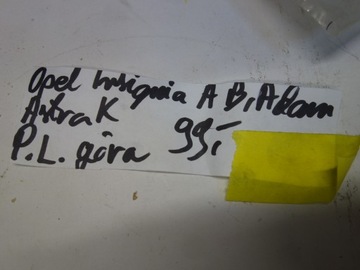 Opel Insignia A B, Adam
Astra K
P.L. góra 99,-